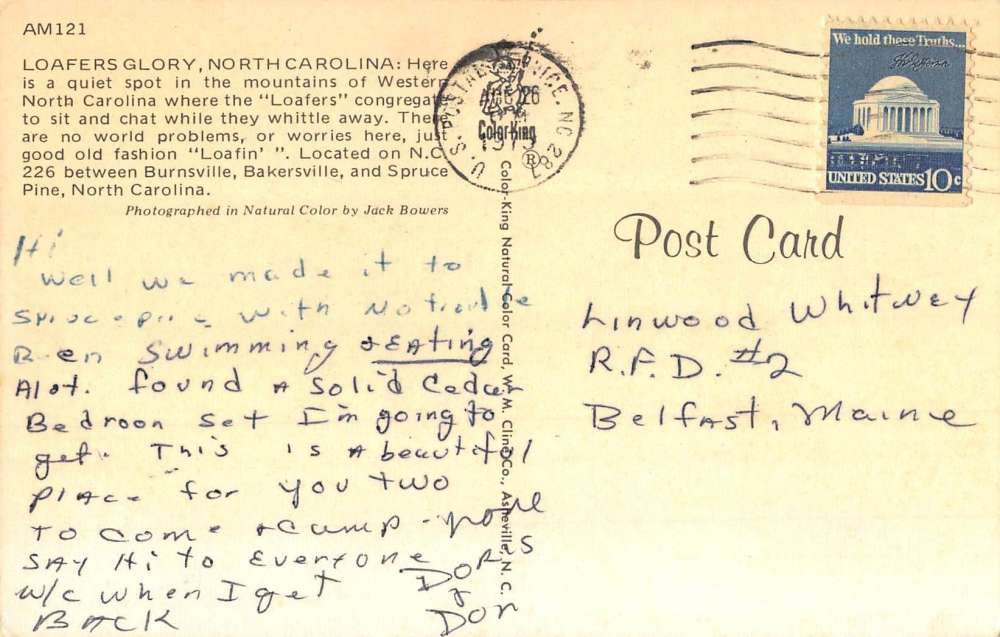 AM121
LOAFERS GLORY, NORTH CAROLINA: Here
is a quiet spot in the mountains of Western
North Carolina where the "Loafers" congregate
to sit and chat while they whittle away. There
are no world problems, or worries here, just
good old fashion "Loafin' ". Located on N.C.
226 between Burnsville, Bakersville, and Spruce
Pine, North Carolina.
Photographed in Natural Color by Jack Bowers
Hi
Well we made it to
Sprucepine with no trouble
Ben swimming & EAting
Alot. found A Solid Cedar
Bedroon Set I'm going to
get. This is A beautiful
place for you two
To come & camp -
SAY Hi to Everyone
w/c when I get
BACK
DORIS
&
Don
Color-King
®
Color-King Natural Color Card, W. M. Cline Co., Asheville, N. C.
U. S. POSTAL SERVICE, NC 287
26
1975
We hold these Truths...
UNITED STATES 10c
Post Card
Linwood Whitney
R.F.D. #2
Belfast, Maine